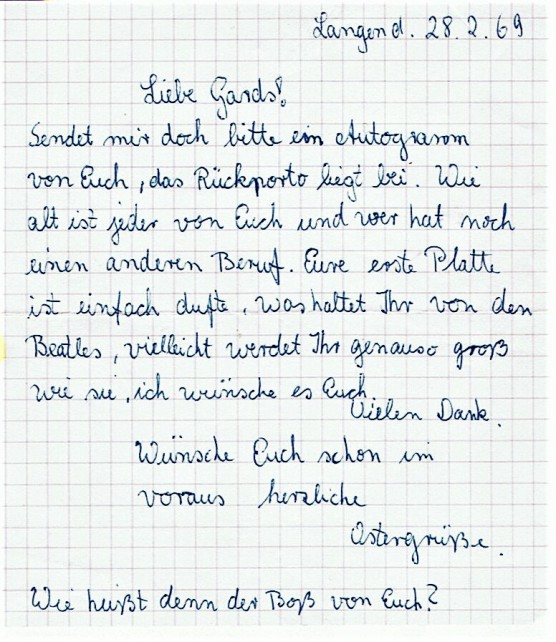 Langend. 28.2.69
Liebe Gards!
Sendet mir doch bitte ein Autogramm
von Euch, das Rückporto liegt bei. Wie
alt ist jeder von Euch und wer hat noch
einen anderen Beruf. Eure erste Platte
ist einfach dufte, was haltet Ihr von den
Beatles, vielleicht werdet Ihr genauso groß
wie sie, ich wünsche es Euch.
Vielen Dank.
Wünsche Euch schon im
voraus herzliche
Ostergrüße.
Wie heißt denn der Boß von Euch?